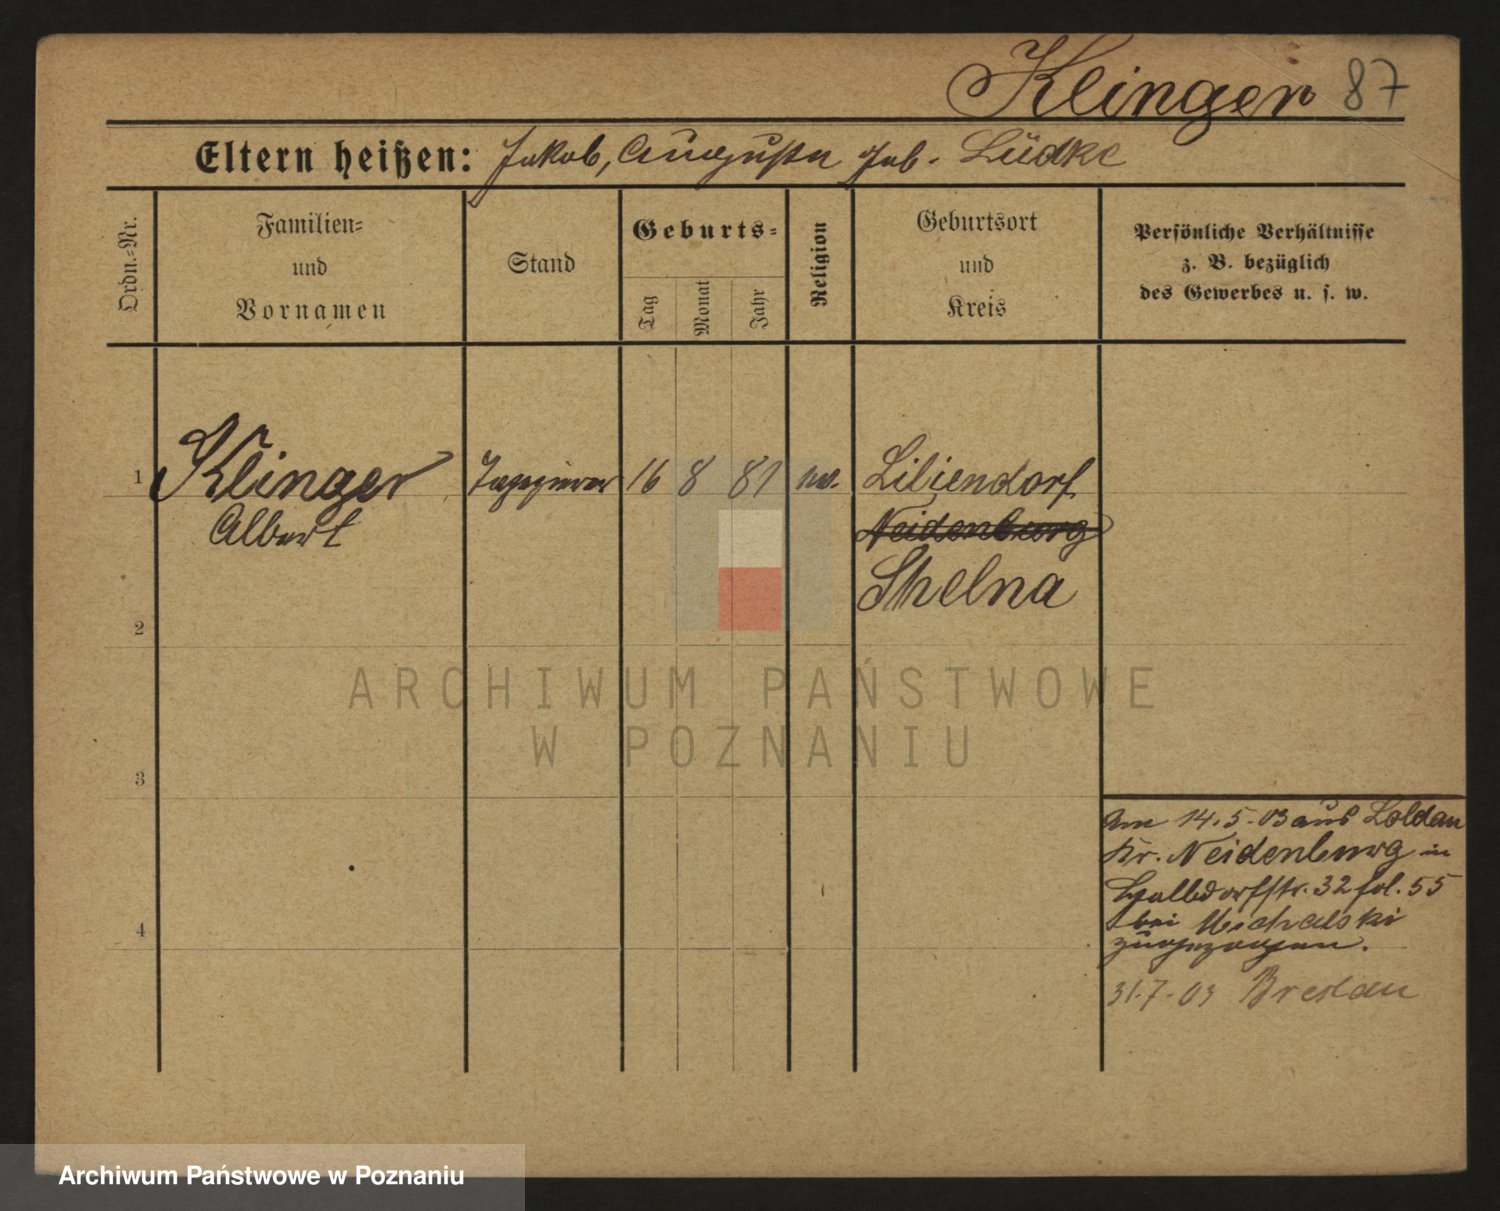 Klinger 87
Eltern heißen: Jakob, Auguste geb. Lüdke
Ordn.-Nr.
Familien=
und
Vornamen
Stand
Geburts=
Tag
Monat
Jahr
Religion
Geburtsort
und
Kreis
Persönliche Verhältnisse
z. B. bezüglich
des Gewerbes u. s. w.
1 Klinger Tapezierer 16 8 81 ev. Liliendorf
Albert Neidenburg
Thelna
2
ARCHIWUM PAŃSTWOWE
W POZNANIU
3
Am 14.5.03 aus Soldau
Kr. Neidenburg in
Halbdorfstr. 32 fol. 55
4 bei Michalski
zugezogen.
31.7.03 Breslau
Archiwum Państwowe w Poznaniu